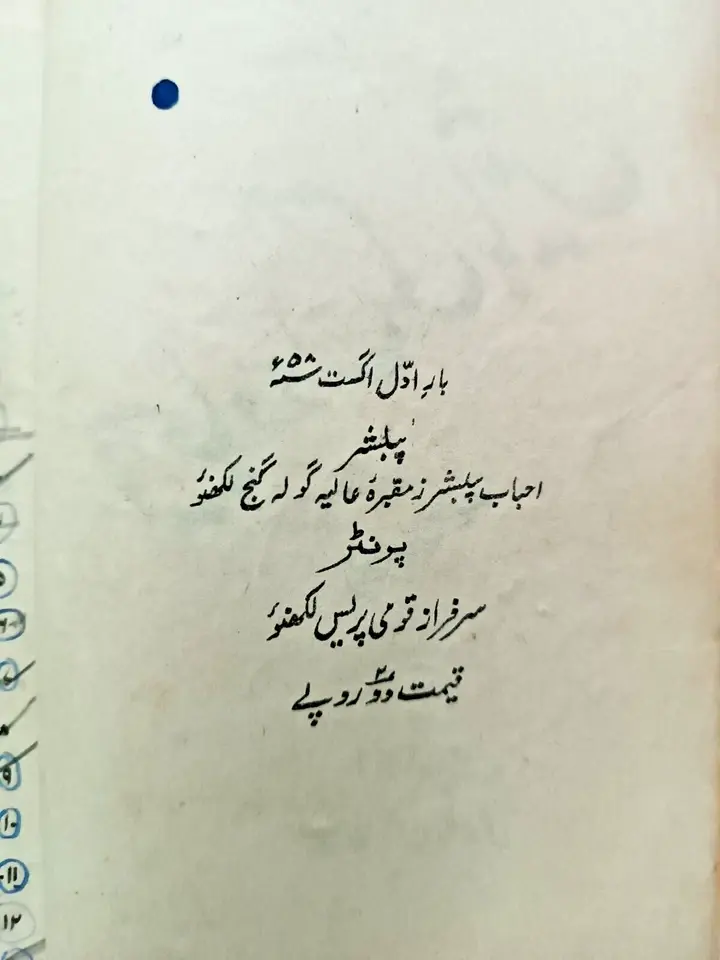 بارِ اوّل اگست ۵۸ء
پبلشر
احباب پبلشرز مقبرۂ عالیہ گولہ گنج لکھنؤ
پرنٹر
سرفراز قومی پریس لکھنؤ
قیمت دو روپے
۵
۸
۹
۱۰
۱۱
۱۲